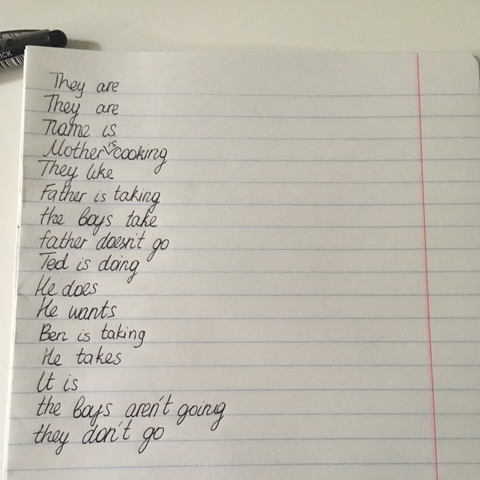 They are
They are
Name is
Mother is cooking
They like
Father is taking
the boys take
father doesn't go
Ted is doing
He does
He wants
Ben is taking
He takes
It is
the boys aren't going
they don't go